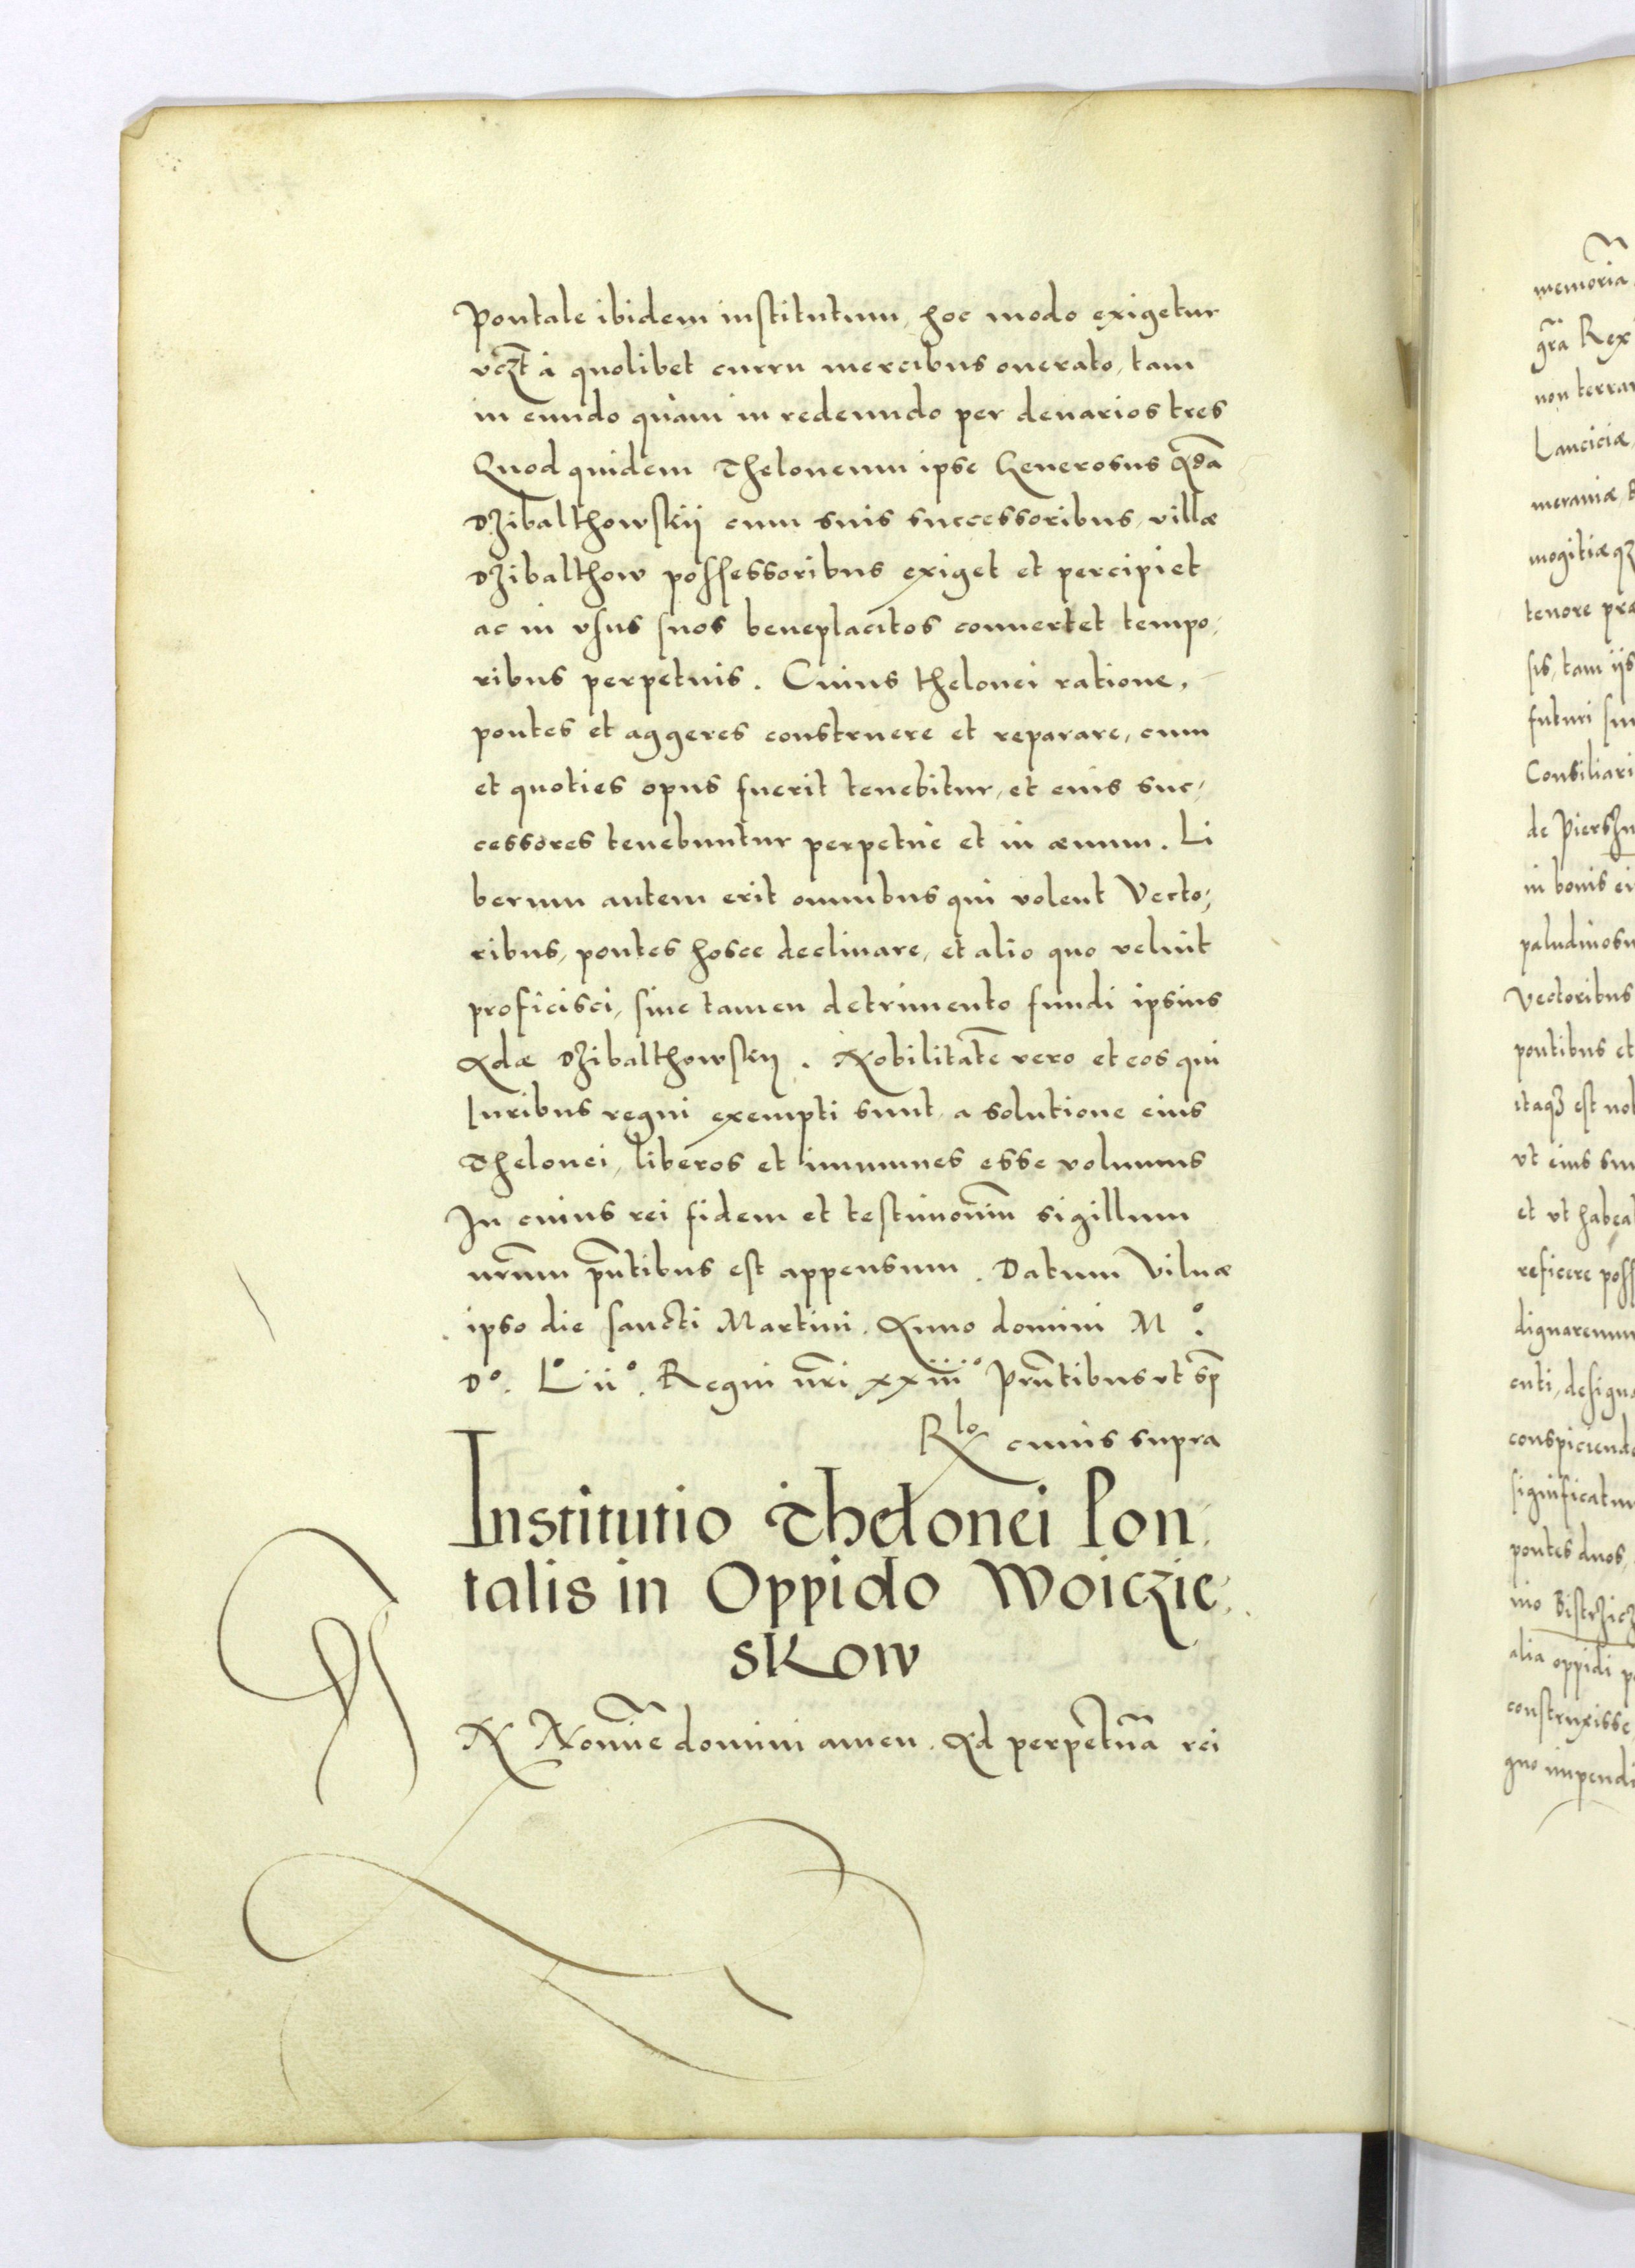 Pontale ibidem institutum, hoc modo exigetur
vczt à quolibet curru mercibus onerato, tam
in eundo quàm in redeundo per denarios tres
Quod quidem Theloneum ipse Generosus Adā
Dzibalthowskij cum suis successoribus, villæ
Dzibalthow possessoribus exiget et percipiet
ac in vsus suos beneplacitos conuertet tempo,
ribus perpetuis. Cuius thelonei ratione,
pontes et aggeres construere et reparare, cum
et quoties opus fuerit tenebitur, et eius suc,
cessores tenebuntur perpetuè et in æuum. Li
berum autem erit omnibus qui volent Vecto,
ribus, pontes hosce declinare, et alio quo velint
proficisci, sine tamen detrimento fundi ipsius
Adæ Dzibalthowskij. Nobilitatē vero et eos qui
Iuribus regni exempti sunt a solutione eius
Thelonei, liberos et immunes esse volumus
In cuius rei fidem et testimoniū sigillum
nr̄um pn̄tibus est appensum. Datum Vilnæ
ipso die sancti Martini. Anno domini Mº.
Dº. Lº iiº. Regni nr̄i xxiiiº Prn̄tibus vt sp̄
Rlo cuius supra
Institutio Thelonei Pon,
talis in Oppido Woiczie,
skow
IN Nomīe domini amen. Ad perpetuā rei
memoria
gr̄a Rex
non terrar
Lanciciæ
meraniæ
mogitiæqz
tenore præ
sis, tam iis
futuri sun
Consiliari
de Pierszn
in bonis ei
paludinosu
Vectoribus
pontibus et
itaqz est nob
vt eius sum
et vt habeat
reficere poss
dignaremur
enti, designa
conspiciendo
significatum
pontes duos,
nio Bistrzicz
alia oppidi p
construxisse
quo impendi